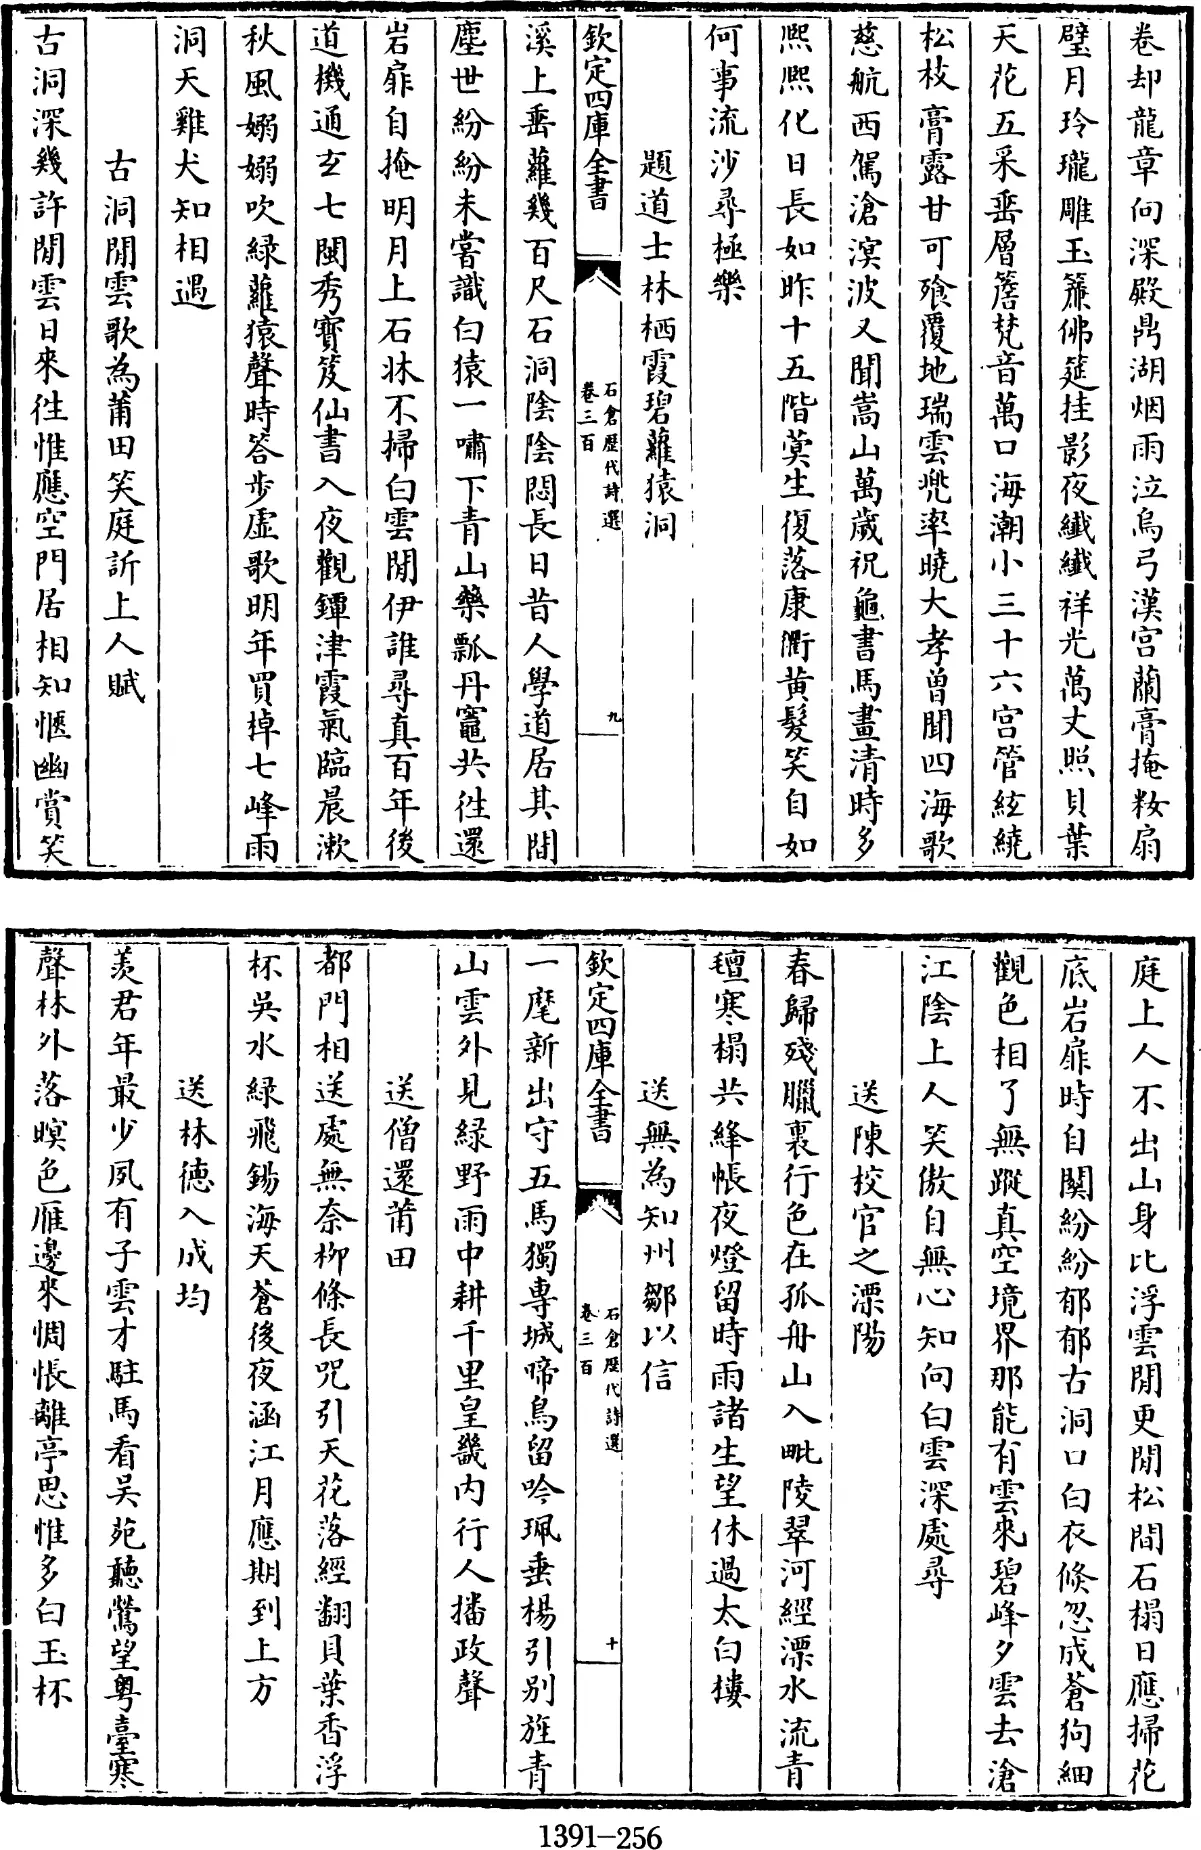 卷却龍章向深殿鼎湖烟雨泣烏弓漢宫蘭膏掩籹扇
璧月玲瓏雕玉簾佛筵挂影夜纎纎祥光萬丈照貝葉
天花五采垂層簷梵音萬口海潮小三十六宫管絃繞
松枝膏露甘可飱覆地瑞雲兠率曉大孝曽聞四海歌
慈航西駕滄溟波又聞嵩山萬歳祝龜書馬畫清時多
熙熙化日長如昨十五階蓂生復落康衢黄髮笑自如
何事流沙尋極樂
題道士林栖霞碧蘿猿洞
欽定四庫全書
石倉歴代詩選
卷三百
九
溪上垂蘿幾百尺石洞陰陰悶長日昔人學道居其間
塵世紛紛未嘗識白猿一嘯下青山藥瓢丹竈共徃還
岩扉自掩明月上石牀不掃白雲閒伊誰尋真百年後
道機通𤣥七閩秀寳笈仙書入夜觀鐔津霞氣臨晨漱
秋風嫋嫋吹緑蘿猿聲時答步虛歌明年買棹七峰雨
洞天雞犬知相遇
古洞閒雲歌為莆田笑庭訢上人賦
古洞深幾許閒雲日來徃惟應空門居相知愜幽賞笑
庭上人不出山身比浮雲閒更閒松間石榻日應掃花
底岩扉時自關紛紛郁郁古洞口白衣倐忽成蒼狗細
觀色相了無蹤真空境界那能有雲來碧峰夕雲去滄
江陰上人笑傲自無心知向白雲深處尋
送陳校官之溧陽
春歸殘臘裏行色在孤舟山入毗陵翠河經溧水流青
氊寒榻共絳帳夜燈留時雨諸生望休過太白樓
送無為知州鄒以信
欽定四庫全書
石倉歴代詩選
卷三百
十
一麾新出守五馬獨専城啼鳥留吟珮垂楊引别旌青
山雲外見緑野雨中耕千里皇畿内行人播政聲
送僧還莆田
都門相送處無奈柳條長咒引天花落經翻貝葉香浮
杯吳水緑飛錫海天蒼後夜涵江月應期到上方
送林德入成均
羨君年最少夙有子雲才駐馬看吳苑聽鶯望粤臺寒
聲林外落暝色雁邊來惆悵離亭思惟多白玉杯
1391-256